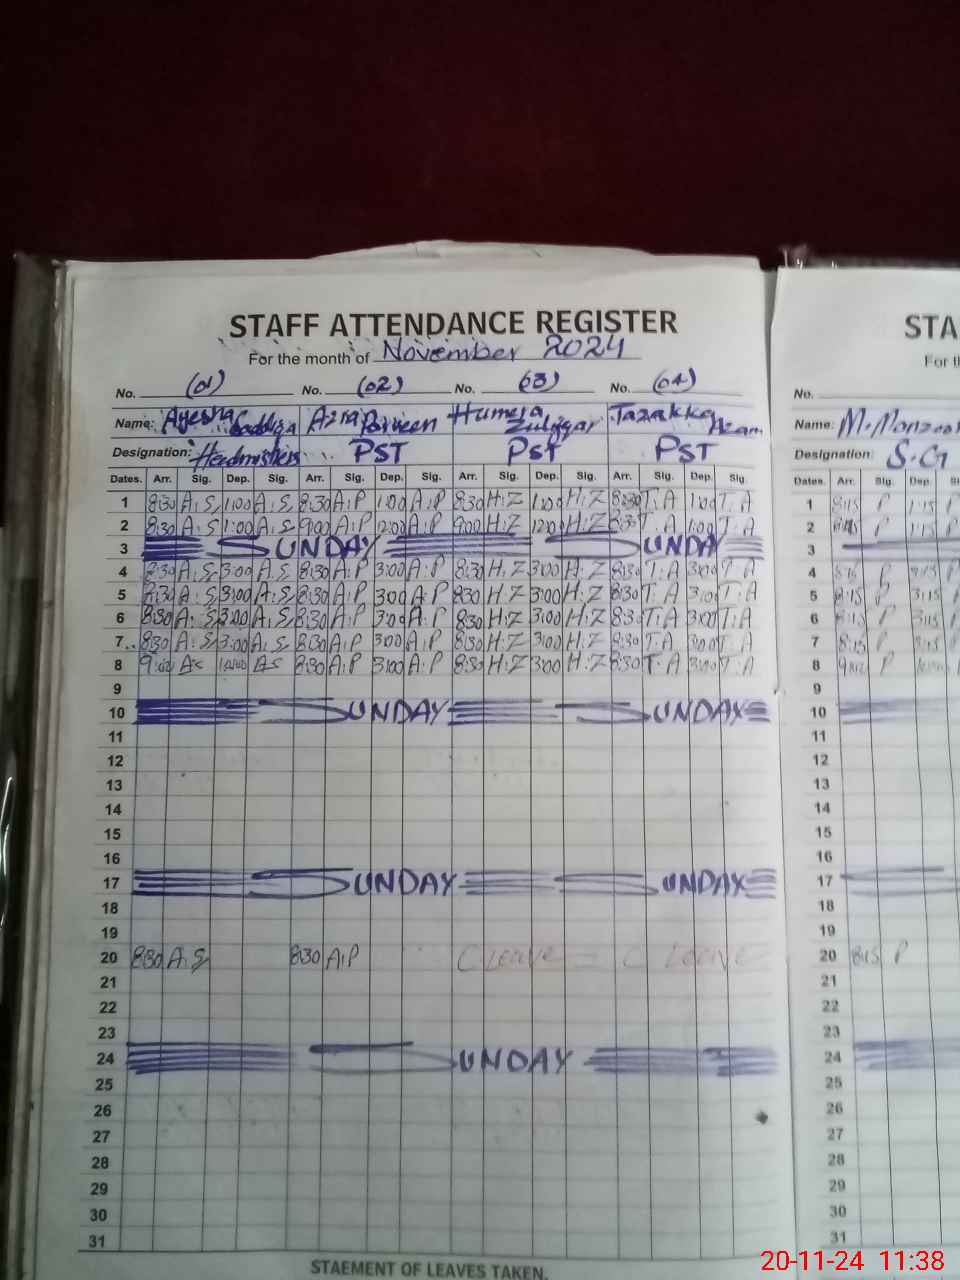 STAFF ATTENDANCE REGISTER
For the month of November 2024
No. (01) No. (02) No. (03) No. (04)
Name: Ayesha Saddiqa Azra Parveen Humera Zulifqar Tazakka Azam
Designation: Headmistress PST PST PST
Dates. Arr. Sig. Dep. Sig. Arr. Sig. Dep. Sig. Arr. Sig. Dep. Sig. Arr. Sig. Dep. Sig.
1 8:30 A:S 1:00 A:S 8:30 A:P 1:00 A:P 8:30 H:Z 1:00 H:Z 8:30 T:A 1:00 T:A
2 8:30 A:S 1:00 A:S 9:00 A:P 12:00 A:P 9:00 H:Z 12:00 H:Z 8:30 T:A 1:00 T:A
3 SUNDAY SUNDAY
4 8:30 A:S 3:00 A:S 8:30 A:P 3:00 A:P 8:30 H:Z 3:00 H:Z 8:30 T:A 3:00 T:A
5 8:30 A:S 3:00 A:S 8:30 A:P 3:00 A:P 8:30 H:Z 3:00 H:Z 8:30 T:A 3:00 T:A
6 8:30 A:S 3:00 A:S 8:30 A:P 3:00 A:P 8:30 H:Z 3:00 H:Z 8:30 T:A 3:00 T:A
7 8:30 A:S 3:00 A:S 8:30 A:P 3:00 A:P 8:30 H:Z 3:00 H:Z 8:30 T:A 3:00 T:A
8 9:00 AS AS 8:30 A:P 3:00 A:P 8:30 H:Z 3:00 H:Z 8:30 T:A 3:00 T:A
9
10 SUNDAY SUNDAY
11
12
13
14
15
16
17 SUNDAY SUNDAY
18
19
20 8:30 A:S 8:30 A:P C Leave C Leave
21
22
23
24 SUNDAY
25
26
27
28
29
30
31
STAEMENT OF LEAVES TAKEN.
STA
For th
No.
Name: M. Manzoor
Designation: S.G
Dates. Arr. Sig. Dep. S
1 8:15 P 1:15
2 P 1:15
3
4 8:15 P 3:15
5 8:15 P 3:15
6 8:15 P 3:15
7 8:15 P 3:15
8 9:00 P
9
10
11
12
13
14
15
16
17
18
19
20 8:15 P
21
22
23
24
25
26
27
28
29
30
31
20-11-24 11:38